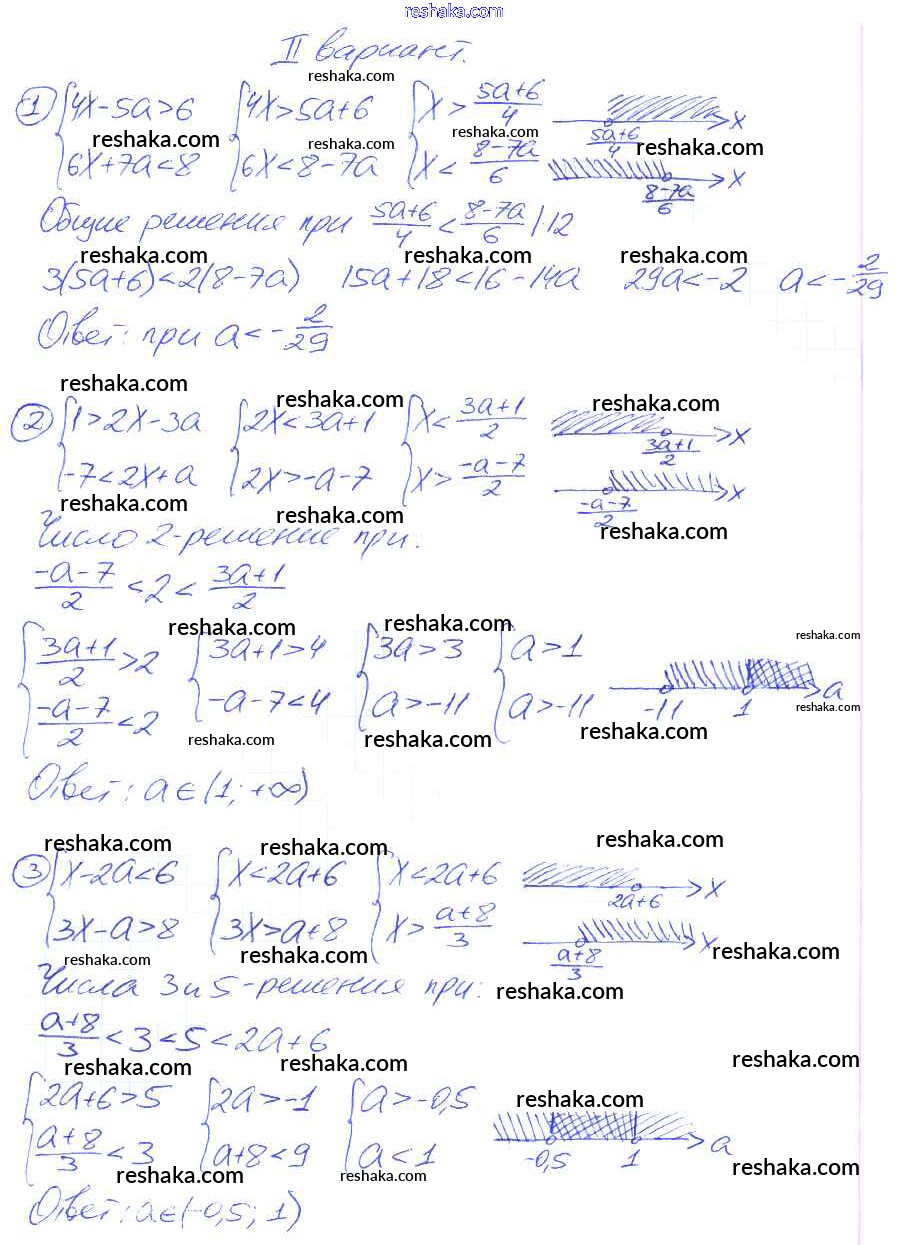 reshaka.com
II вариант.
reshaka.com
① {4x-5a>6 {4x>5a+6 {x> (5a+6)/4 (5a+6)/4 x
reshaka.com reshaka.com reshaka.com reshaka.com
{6x+7a<8 {6x<8-7a {x< (8-7a)/6 (8-7a)/6 x
Общие решения при (5a+6)/4 < (8-7a)/6 |·12
reshaka.com reshaka.com reshaka.com
3(5a+6)<2(8-7a) 15a+18<16-14a 29a<-2 a<-2/29
Ответ: при a<-2/29
reshaka.com reshaka.com reshaka.com
② {1>2x-3a {2x<3a+1 {x< (3a+1)/2 (3a+1)/2 x
{-7<2x+a {2x>-a-7 {x> (-a-7)/2 (-a-7)/2 x
reshaka.com reshaka.com reshaka.com
Число 2-решение при:
(-a-7)/2 <2< (3a+1)/2
reshaka.com reshaka.com reshaka.com
{(3a+1)/2 >2 {3a+1>4 {3a>3 {a>1
{(-a-7)/2 <2 {-a-7<4 {a>-11 {a>-11 -11 1 a
reshaka.com reshaka.com reshaka.com reshaka.com
Ответ: a∈(1; +∞)
reshaka.com reshaka.com reshaka.com
③ {x-2a<6 {x<2a+6 {x<2a+6 2a+6 x
{3x-a>8 {3x>a+8 {x> (a+8)/3 (a+8)/3 x
reshaka.com reshaka.com reshaka.com
Числа 3 и 5-решения при: reshaka.com
(a+8)/3 <3<5<2a+6
reshaka.com reshaka.com reshaka.com
{2a+6>5 {2a>-1 {a>-0,5 reshaka.com
{(a+8)/3 <3 {a+8<9 {a<1 -0,5 1 a
reshaka.com reshaka.com reshaka.com
Ответ: a∈(-0,5; 1)